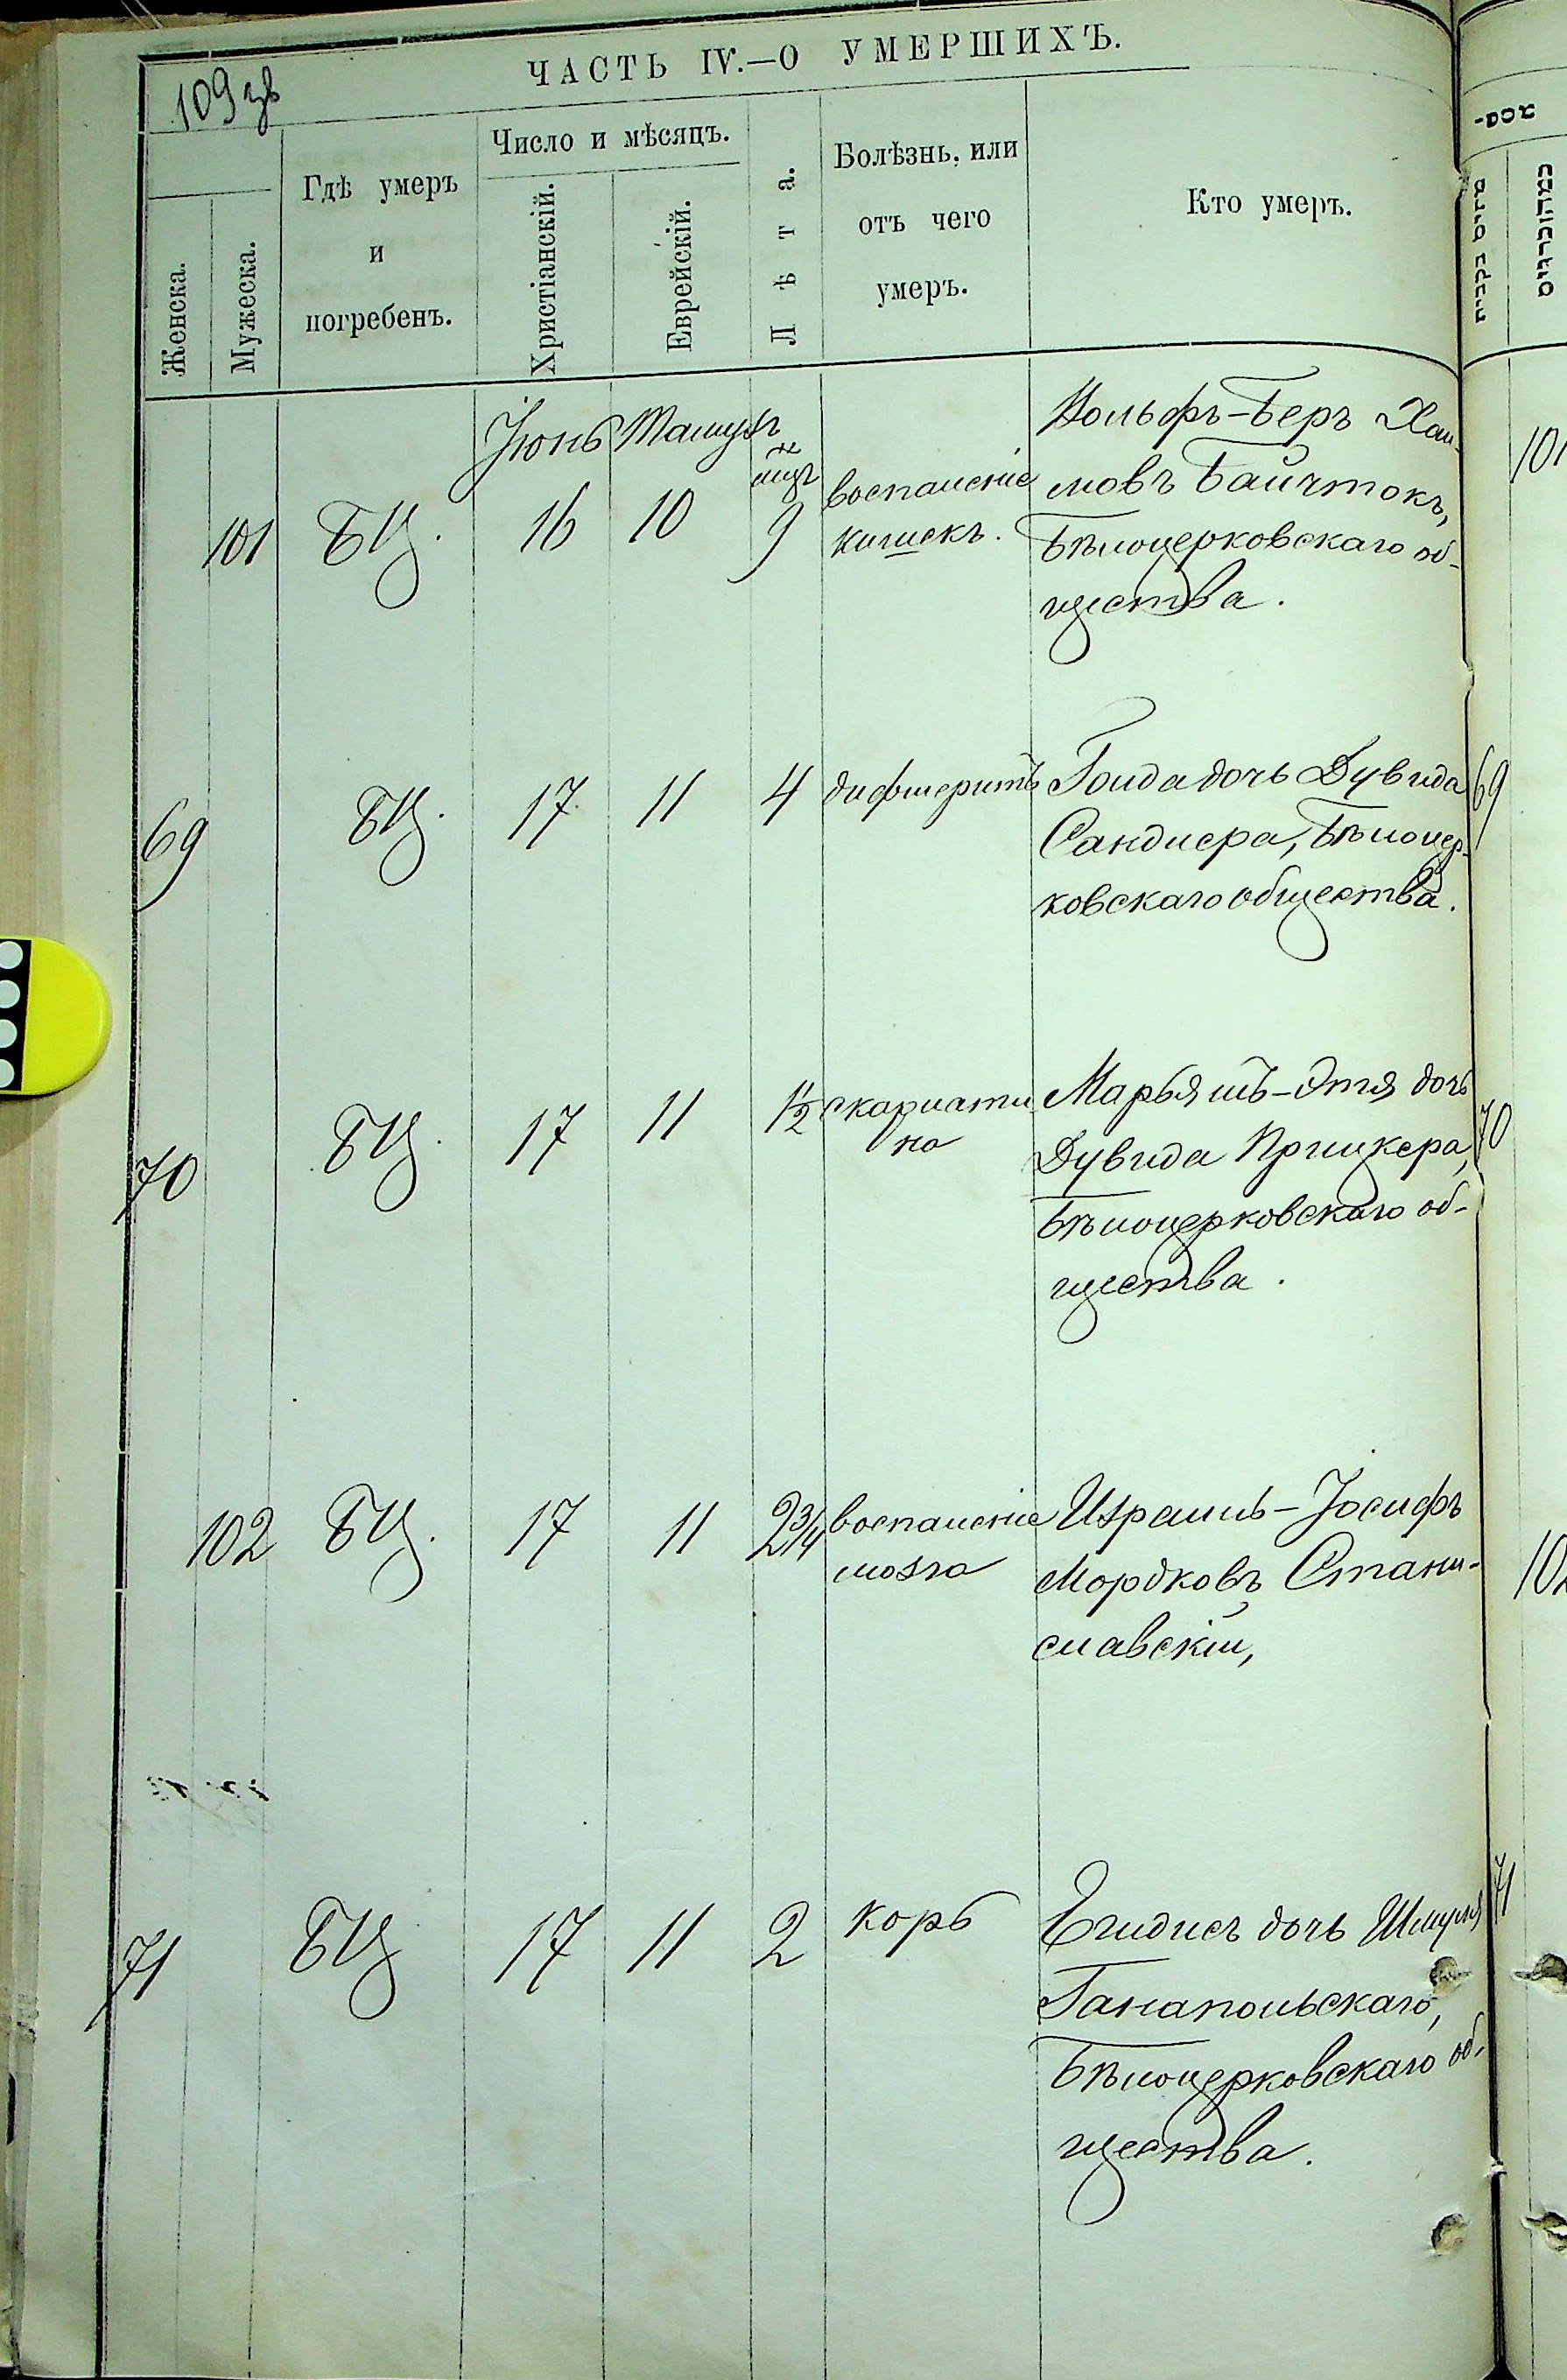 109 зв
ЧАСТЬ IV.—О УМЕРШИХЪ.
Женска.
Мужеска.
Гдѣ умеръ
и
погребенъ.
Число и мѣсяцъ.
Христіанскій.
Еврейскій.
Лѣта.
Болѣзнь, или
отъ чего
умеръ.
Кто умеръ.
Іюнь Тамузъ
101 БЦ. 16 10 9 воспаленіе
кишекъ.
Вольфъ-Беръ Хаи-
мовъ Байчтокъ,
Бѣлоцерковскаго об-
щества.
101
69 БЦ. 17 11 4 дифтеритъ
Голда дочь Дувида
Сандлера, Бѣлоцер-
ковскаго общества.
69
70 БЦ. 17 11 1½ скарлати
на
Марьясь-Этя дочь
Дувида Прицкера,
Бѣлоцерковскаго об-
щества.
70
102 БЦ. 17 11 2¾ воспаленіе
мозга
Израиль-Іосифъ
Мордковъ Стани-
славскій,
102
71 БЦ 17 11 2 корь
дочь Шмуля
Ганапольскаго,
Бѣлоцерковскаго об-
щества.
71